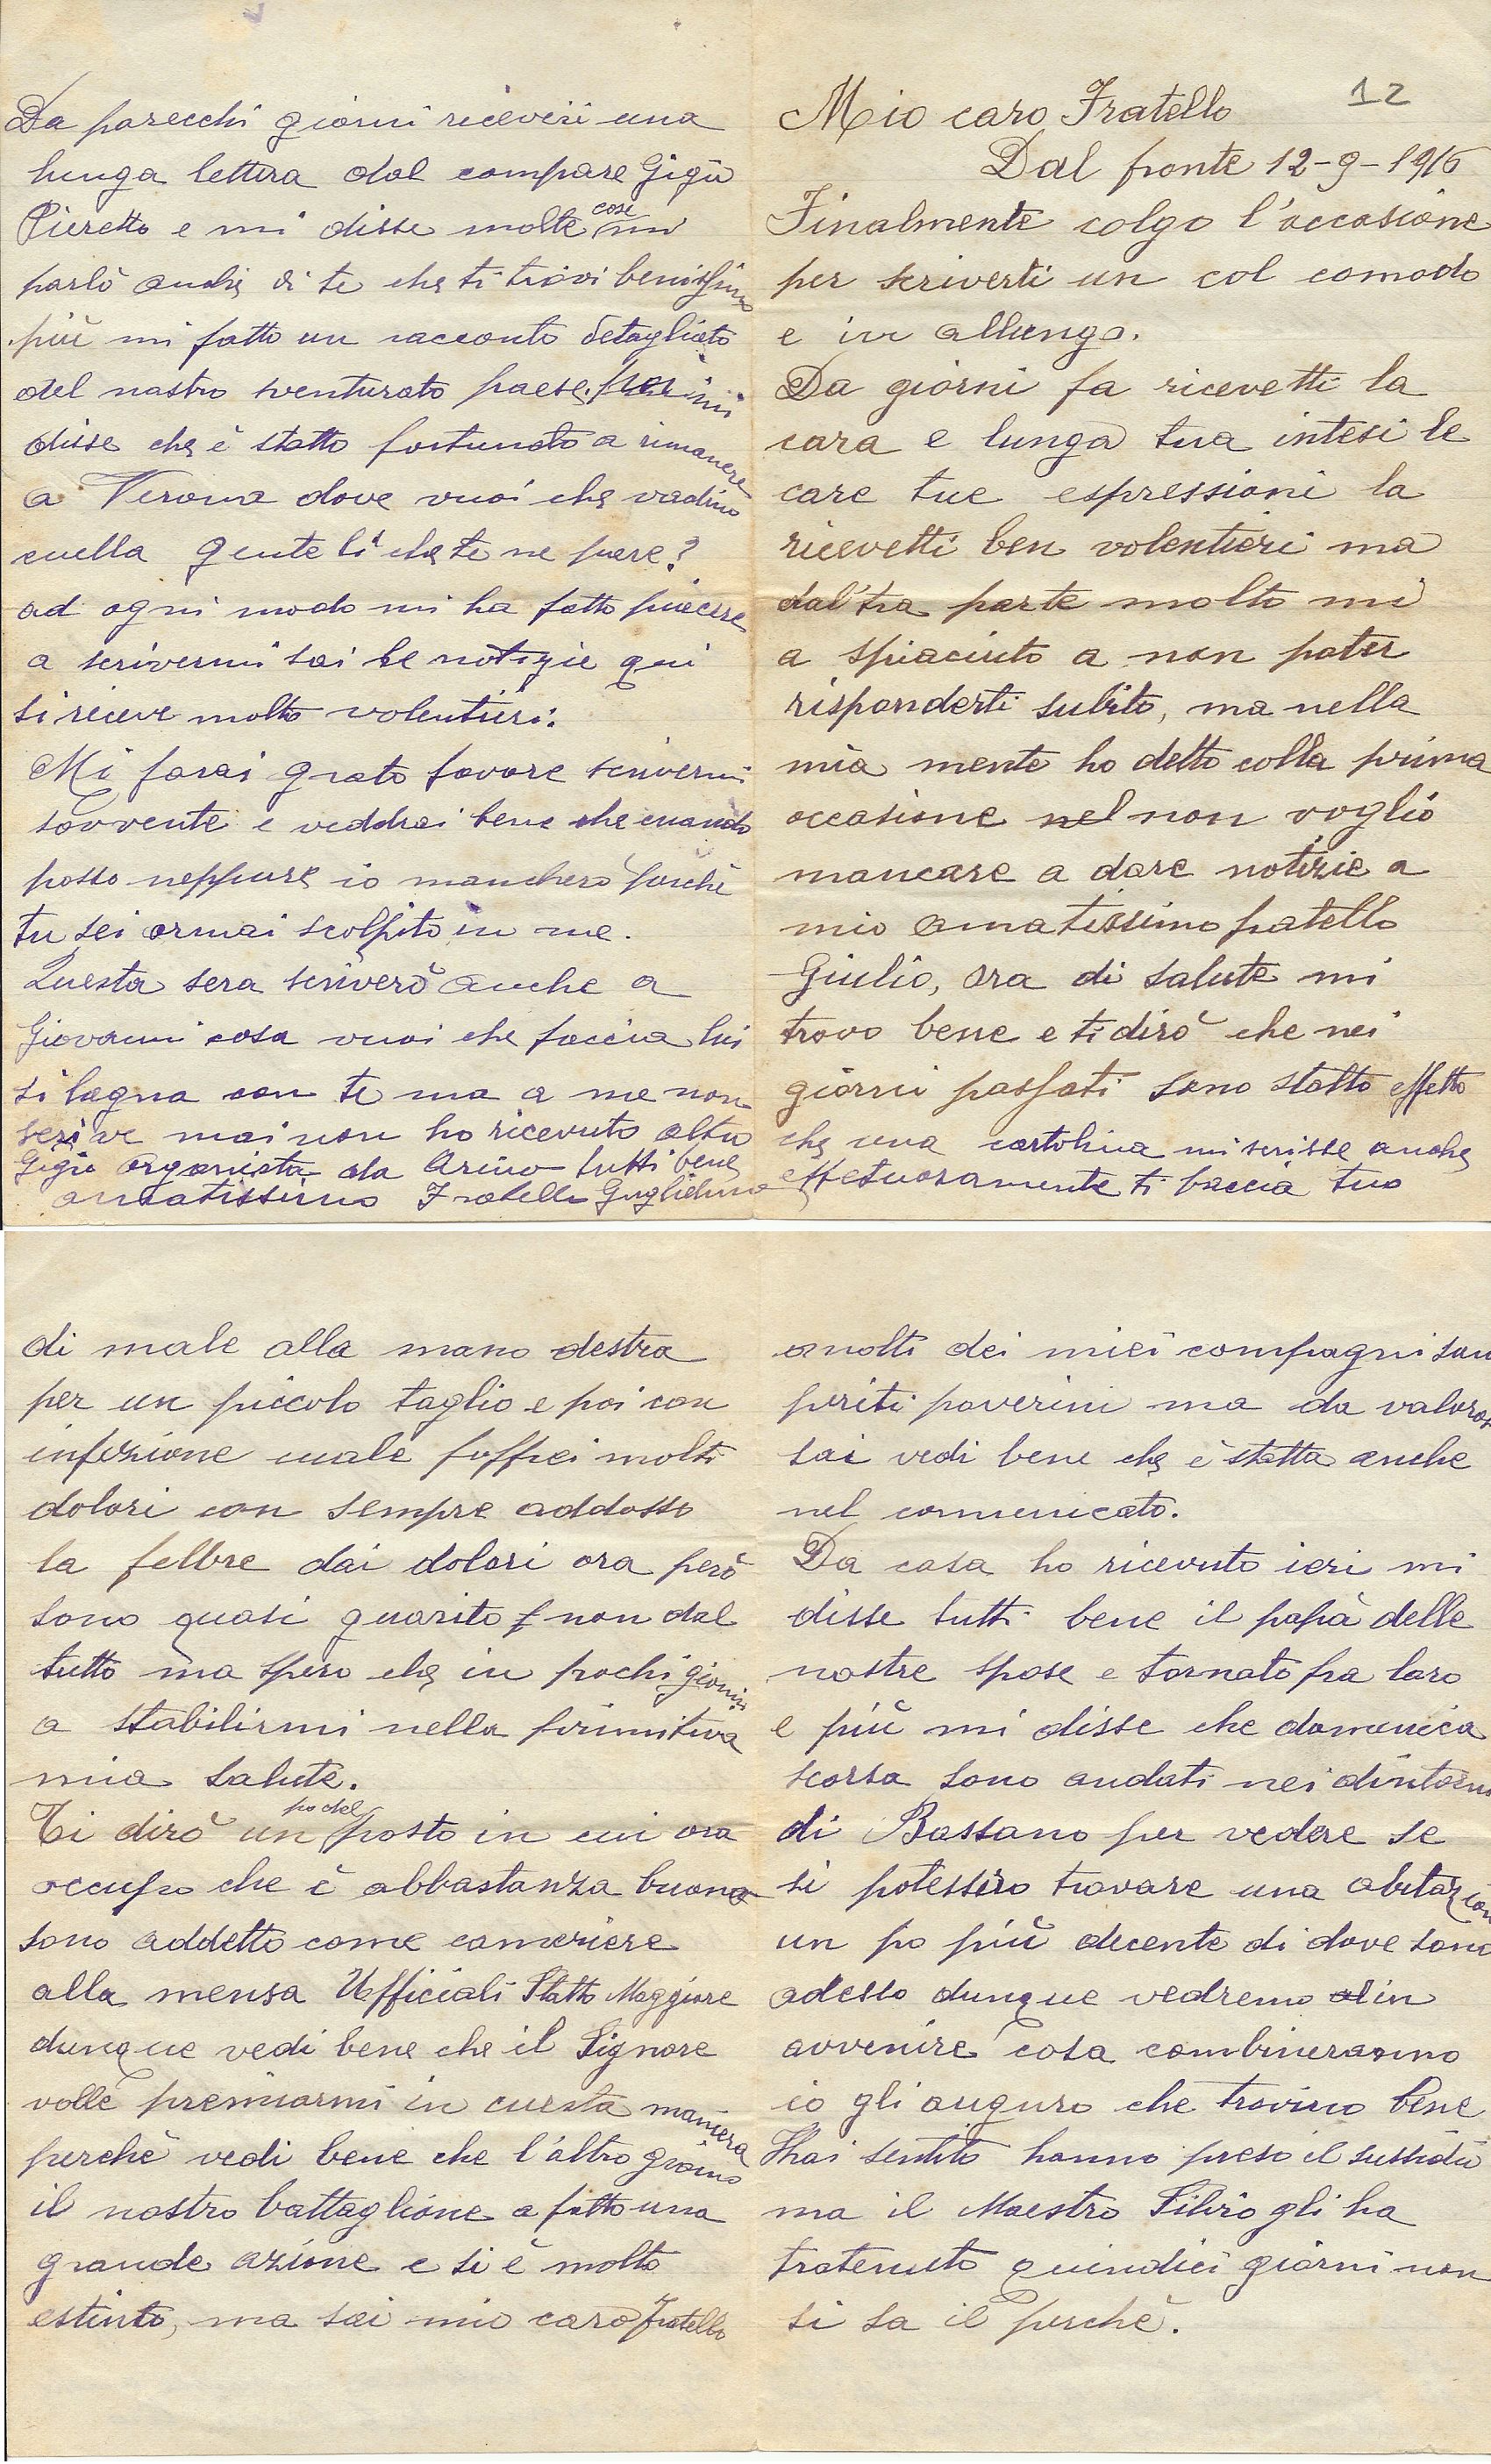 12
Mio caro Fratello
Dal fronte 12-9-1916
Finalmente colgo l'occasione
per scriverti un col comodo
e in allungo.
Da giorni fa ricevetti la
cara e lunga tua intesi le
care tue espressioni la
ricevetti ben volentieri ma
dal'tra parte molto mi
a spiaciuto a non poter
risponderti subito, ma nella
mia mente ho detto colla prima
occasione nel non voglio
mancare a dare notizie a
mio amatissimo fratello
Giulio, ora di salute mi
trovo bene e ti dirò che nei
giorni passati sono statto effetto
di male alla mano destra
per un piccolo taglio e poi con
infezione cuale soffrei molti
dolori con sempre addosso
la febbre dai dolori ora però
sono quasi guarito f non dal
tutto ma spero che in pochi giorni
a stabilirmi nella primitiva
mia salute.
Ti dirò un po del posto in cui ora
occupo che è abbastanza buono
sono addetto come cameriere
alla mensa Ufficiali Statto Maggiore
dunque vedi bene che il Signore
volle premiarmi in cuesta maniera
perchè vedi bene che l'altro giorno
il nostro battaglione a fatto una
grande azione e si è molto
estinto, ma sai mio caro fratello
molti dei miei compagni son
periti poverini ma da valorosi
sai vedi bene che è statta anche
nel comunicato.
Da casa ho ricevuto ieri mi
disse tutti bene il papà delle
nostre spose e tornato fra loro
e più mi disse che domenica
scorsa sono andati nei dintorni
di Bassano per vedere se
si potessero trovare una abitazion
un po più decente di dove sono
adesso dunque vedremo al in
avvenire cosa combineranno
io gli auguro che trovino bene
hai sentito hanno preso il sussidio
ma il Maestro Silvio gli ha
tratenuto quindici giorni non
si sa il perchè.
Da parecchi giorni riceveii una
lunga lettera dal compare Gigio
Pieretto e mi disse molte cose mi
parlò anche di te che ti trovi benissimo
più mi fatto un racconto detagliato
del nastro sventurato paese. mi
disse che è statto fortunato a rimanere
a Verona dove vuoi che vadino
cuella gente lì che te ne pare?
ad ogni modo mi ha fatto piacere
a scrivermi sai le notizie qui
si riceve molto volentieri.
Mi farai grato favore scrivermi
sovvente e veddrai bene che cuando
posso neppure io mancherò perchè
tu sei ormai scolpito in me.
Questa sera scriverò anche a
Giovanni cosa vuoi che faccia lui
si lagna con te ma a me non
scrive mai non ho ricevuto altro
che una cartolina mi scrisse anche
Gigio Organista da Arino tutti bene
effetuosamente ti baccia tuo
amatissimo Fratello Guglielmo